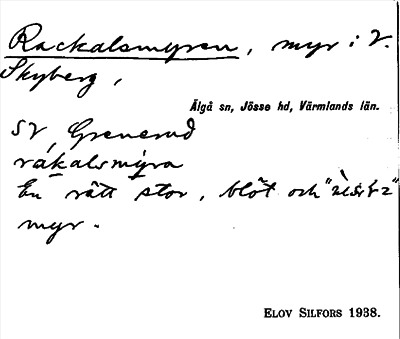 Rackalsmyren, myr i V.
Skyberg,
Älgå sn, Jösse hd, Värmlands län.
SV, Grenerud
rákalsmýra
En rätt stor, blöt och
myr.
ELOV SILFORS 1938.